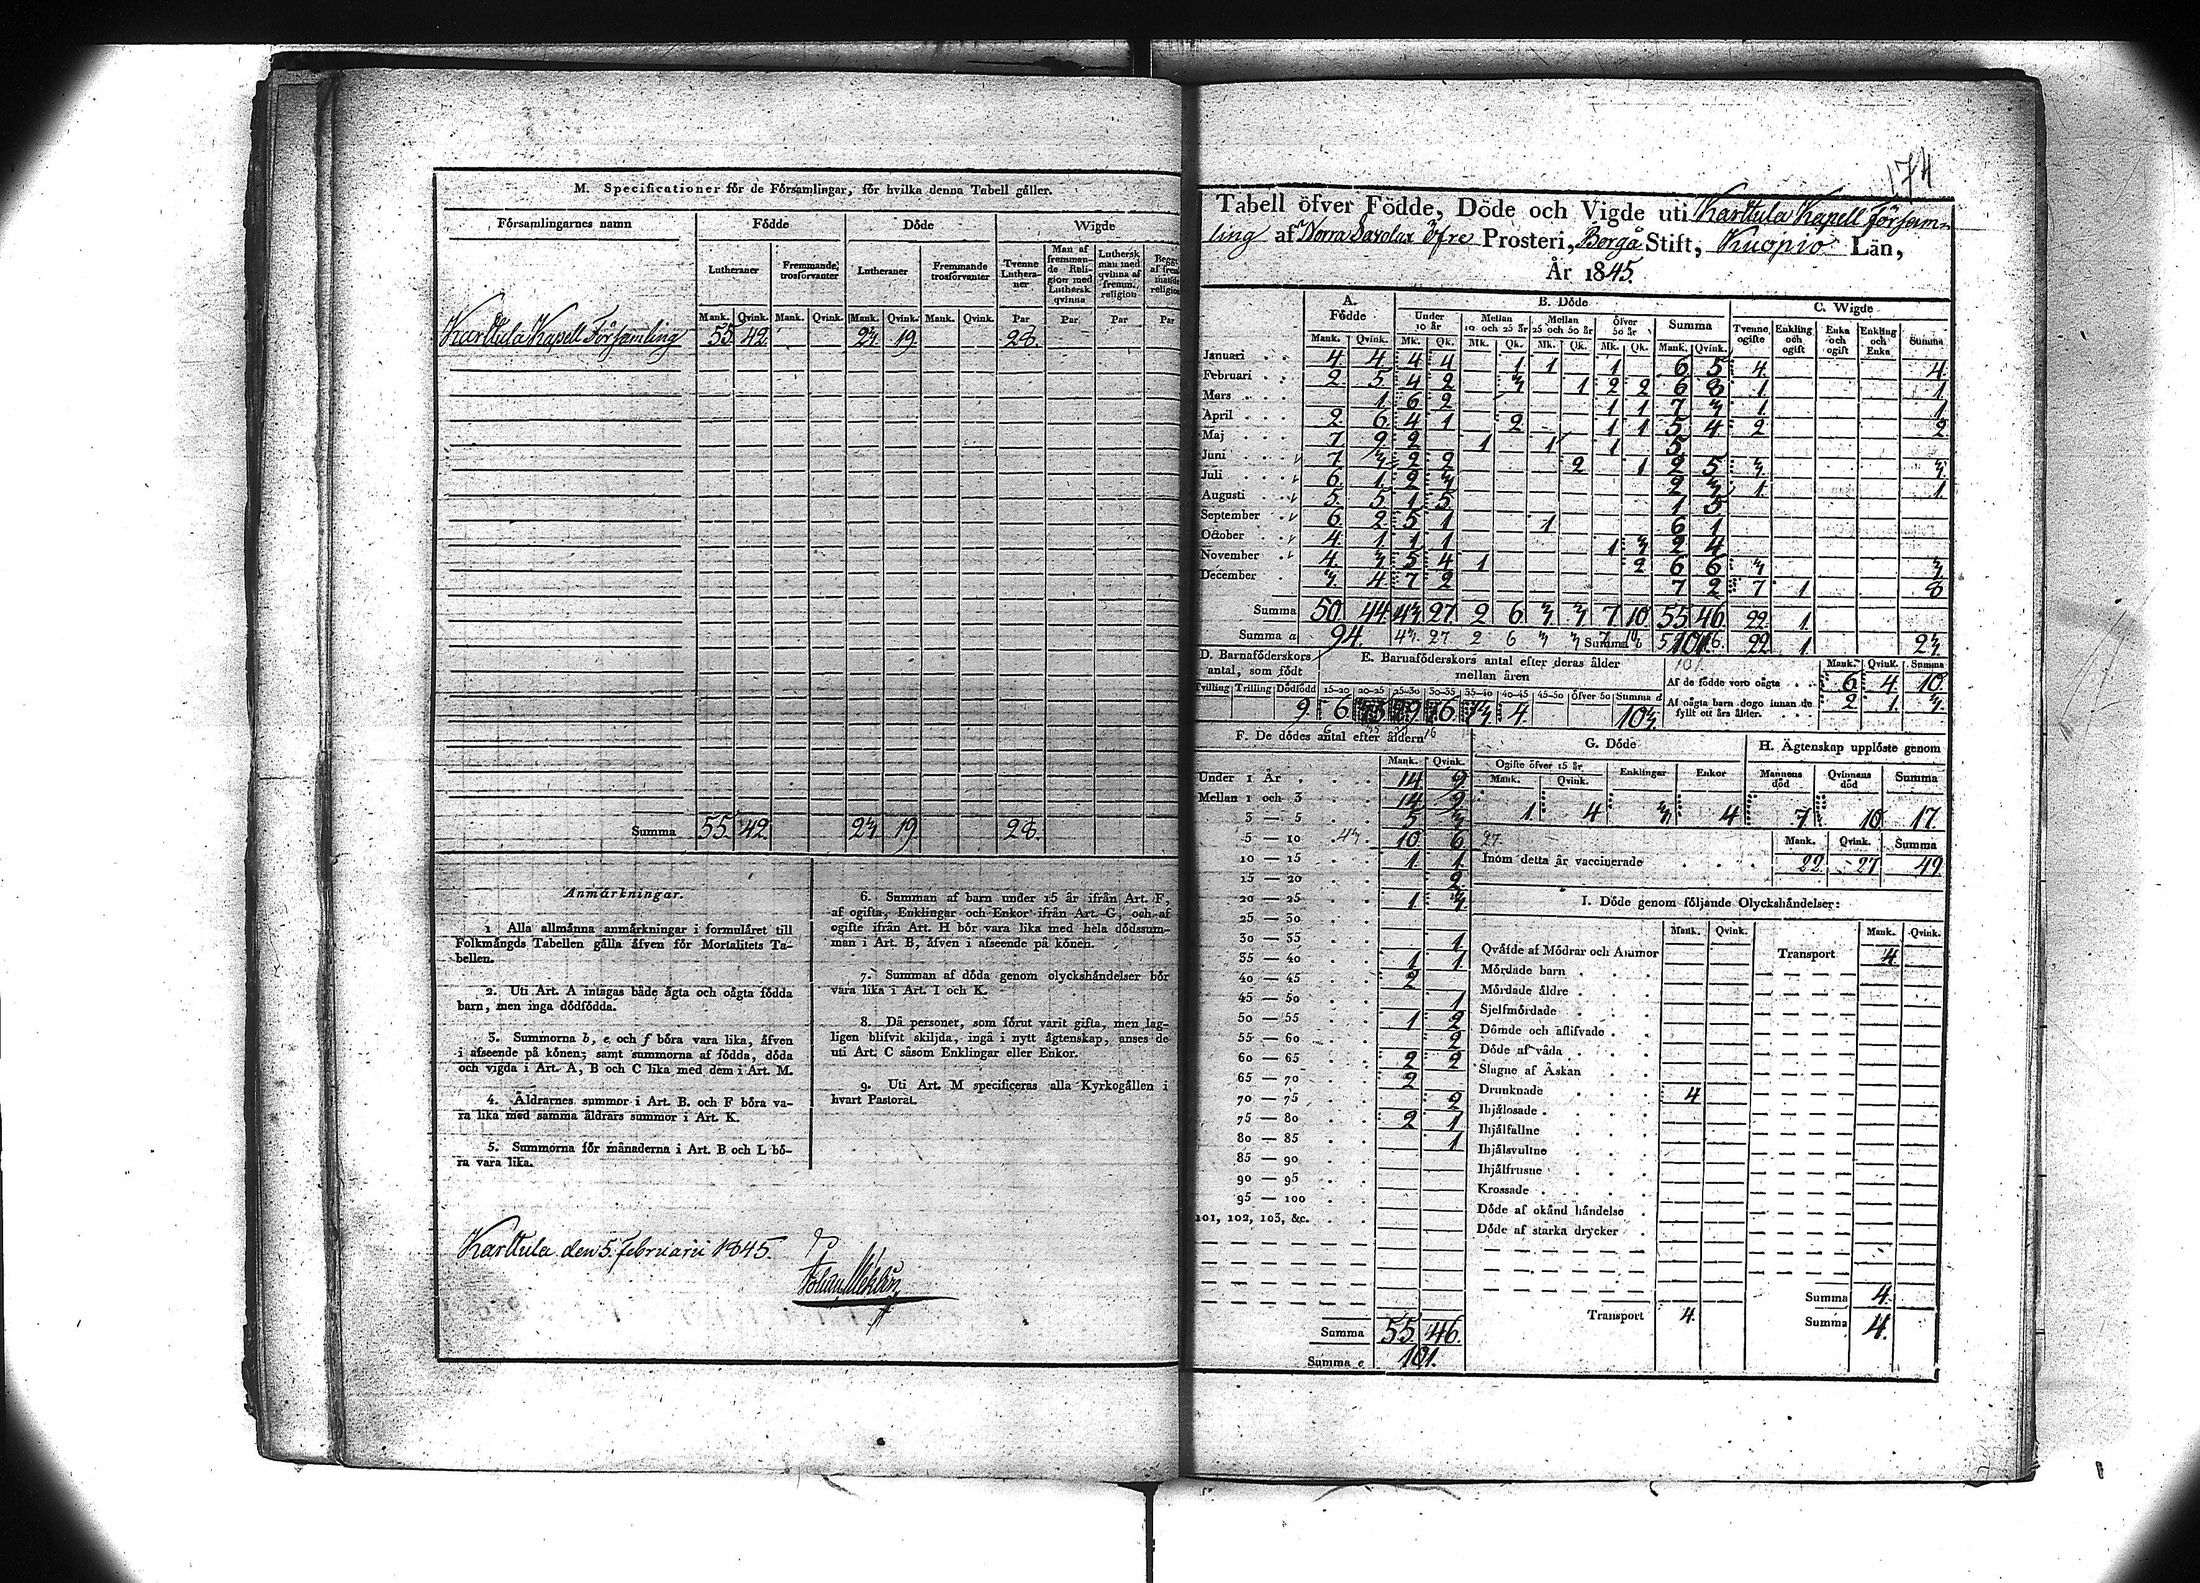 M. Specificationer för de Församlingar, för hvilka denna Tabell gäller.
Församlingarnes namn Födde Döde Wigde
Lutheraner Fremmande trosförvanter Lutheraner Fremmande trosförvanter Tvenne Lutheraner Man af fremmande Religion med Luthersk qvinna Luthersk man med qvinna af fremm. religion
Mank. Qvink. Mank. Qvink. Mank. Qvink. Mank. Qvink. Par Par Par Par
Karttula Kapell Församling 55 42 23 19 28.
Summa 55 42 23 19 28.
Anmärkningar.
1 Alla allmänna anmärkningar i formuläret till
Folkmängds Tabellen gälla äfven för Mortalitets Ta-
bellen.
2. Uti Art. A intagas både ägta och oägta födda
barn, men inga dödfödda.
3. Summorna b, e och f böra vara lika, äfven
i afseende på könen; samt summorna af födda, döda
och vigda i Art. A, B och C lika med dem i Art. M.
4. Åldrarnes summor i Art. B. och F böra va-
ra lika med samma åldrars summor i Art. K.
5. Summorna för månaderna i Art. B och L bö-
ra vara lika.
6. Summan af barn under 15 år ifrån Art. F,
af ogifta, Enklingar och Enkor ifrån Art. G, och af
ogifte ifrån Art. H bör vara lika med hela dödssum-
man i Art. B, äfven i afseende på könen.
7. Summan af döda genom olyckshändelser bör
vara lika i Art. I och K.
8. Då personer, som förut varit gifta, men lag-
ligen blifvit skiljda, ingå i nytt ägtenskap, anses de
uti Art. C såsom Enklingar eller Enkor.
9. Uti Art. M specificeras alla Kyrkogällen i
hvart Pastorat.
Karttula den 5. Februarii 1845.
174
Tabell öfver Födde, Döde och Vigde uti Karttula Kapell Försam-
ling af Norra Savolax öfre Prosteri, Borgå Stift, Kuopio Län,
År 1845.
A. Födde B. Döde C. Wigde
Under 10 år Mellan 10 och 25 år Mellan 25 och 50 år Öfver 50 år Summa Tvenne ogifte Enkling och ogift Enka och ogift Enkling och Enka Summa
Mank. Qvink. Mk. Qk. Mk. Qk. Mk. Qk. Mk. Qk. Mank. Qvink.
Januari 4 4 4 4 1 1 1 6 5 4 4
Februari 2 5 4 2 3 1 2 2 6 8 1 1
Mars 1 6 2 1 1 7 3 1 1
April 2 6 4 1 2 1 1 5 4 2 2
Maj 7 9 2 1 1 1 5
Juni 7 3 2 2 2 1 2 5 3 3
Juli 6 1 2 3 2 3 1 1
Augusti 5 5 1 5 1 5
September 6 2 5 1 1 6 1
October 4 1 1 1 1 3 2 4
November 4 3 5 4 1 2 6 6 3 3
December 3 4 7 2 7 2 7 1 8
Summa 50 44 43 27 2 6 3 3 7 10 55 46 22 1
Summa a 94. Summa b 101. 22 1 23.
D. Barnaföderskors antal, som födt
Tvilling Trilling Dödfödd
9
E. Barnaföderskors antal efter deras ålder
mellan åren
15—20 20—25 25—30 30—35 35—40 40—45 45—50 Öfver 50 Summa d
6 16 13 4 103
Mank. Qvink. Summa
Af de födde voro oägta 6 4 10
Af oägta barn dogo innan de fyllt ett års ålder. 2 1 3
F. De dödes antal efter åldern
Mank. Qvink.
Under 1 År 14 9
Mellan 1 och 3 14 9
3 — 5 5 3
5 — 10 43 10 6 27
10 — 15 1 1
15 — 20 2
20 — 25 1 3
25 — 30
30 — 35 1
35 — 40 1 1
40 — 45 2
45 — 50 1
50 — 55 1 2
55 — 60 2
60 — 65 2 2
65 — 70 2
70 — 75 2
75 — 80 2 1
80 — 85 1
85 — 90
90 — 95
95 — 100
101, 102, 103, &c.
Summa 55 46.
Summa e 101.
G. Döde
Ogifte öfver 15 år Enklingar Enkor
Mank. Qvink.
1 4 3 4
H. Ägtenskap upplöste genom
Mannens död Qvinnans död Summa
7 10 17
Mank. Qvink. Summa
Inom detta år vaccinerade 22 27 49
I. Döde genom följande Olyckshändelser:
Mank. Qvink. Mank. Qvink.
Qväfde af Mödrar och Ammor Transport 4
Mördade barn
Mördade äldre
Sjelfmördade
Dömde och aflifvade
Döde af våda
Slagne af Åskan
Drunknade 4
Ihjälosade
Ihjälfallne
Ihjälsvultne
Ihjälfrusne
Krossade
Döde af okänd händelse
Döde af starka drycker
Summa 4.
Transport 4. Summa 4.